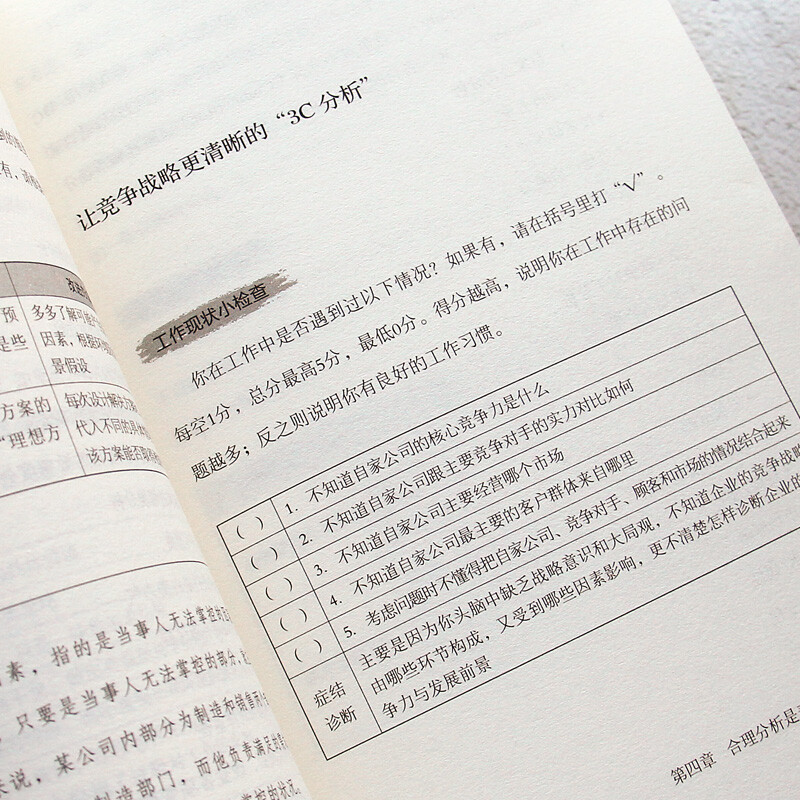 预
是些
方案的
“理想方
多多了解可能
因素，根据
景假设
每次设计解决方
代入不同的具
该方案能否
素，指的是当事人无法掌控的
，只要是当事人无法掌控的部分，
来说，某公司内部分为制造和销售两
制造部门，而他负责满足
掌控的状况
让竞争战略更清晰的“3C 分析”
工作现状小检查
你在工作中是否遇到过以下情况？如果有，请在括号里打“√”。
每空1分，总分最高5分，最低0分。得分越高，说明你在工作中存在的问
题越多；反之则说明你有良好的工作习惯。
（ ） 1. 不知道自家公司的核心竞争力是什么
（ ） 2. 不知道自家公司跟主要竞争对手的实力对比如何
（ ） 3. 不知道自家公司主要经营哪个市场
（ ） 4. 不知道自家公司最主要的客户群体来自哪里
（ ） 5. 考虑问题时不懂得把自家公司、竞争对手、顾客和市场的情况结合起来
症结
诊断
主要是因为你头脑中缺乏战略意识和大局观，不知道企业的竞争战略
由哪些环节构成，又受到哪些因素影响，更不清楚怎样诊断企业的
争力与发展前景
第四章 合理分析是